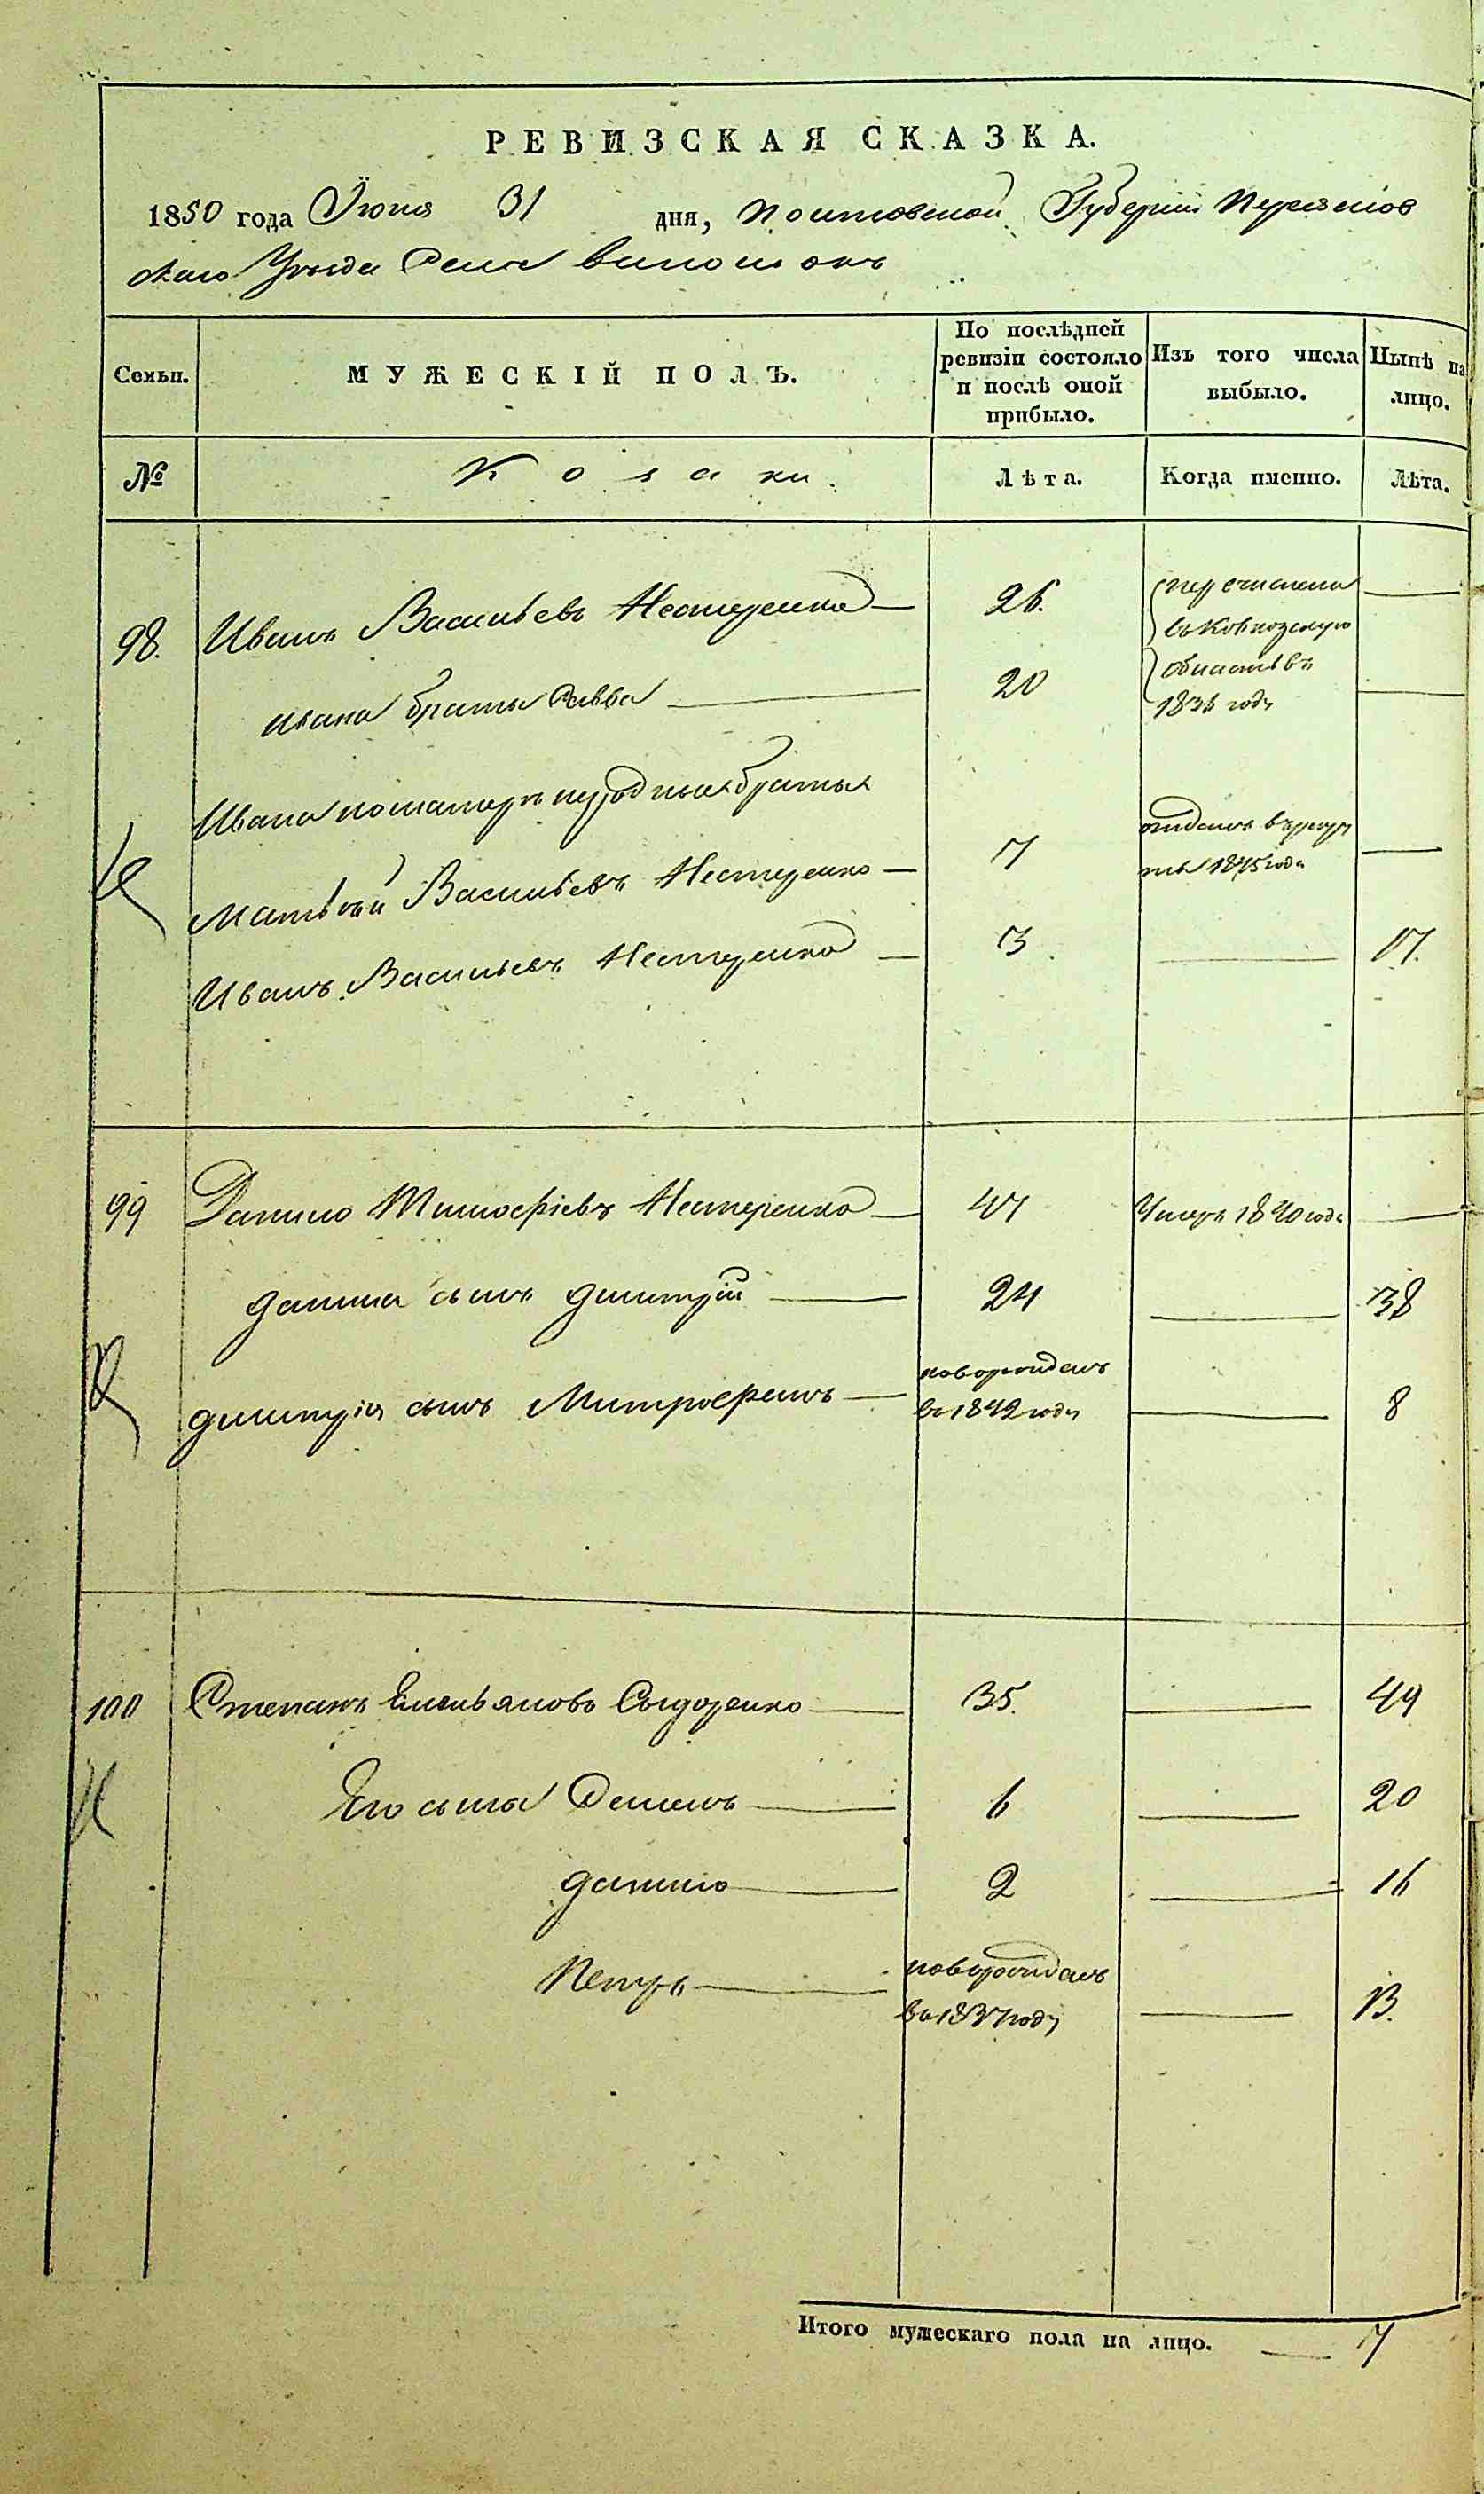 РЕВИЗСКАЯ СКАЗКА.
1850 года Іюня 31 дня, Полтавской Губерніи Переяслов
скаго Уѣзда Села
Семьи.
МУЖЕСКІЙ ПОЛЪ.
По послѣдней ревизіи состояло и послѣ оной прибыло.
Изъ того числа выбыло.
Нынѣ на лицо.
№
Козаки.
Лѣта.
Когда именно.
Лѣта.
98. Иванъ Васильевъ Нестеренко — 26. перечислены —
въ Кавказскую
Ивана братъ Савва — 20 область въ —
183 году
Ивана по матери родныя братья
Матвѣй Васильевъ Нестеренко — 7 отданъ въ рекру
ты 1845 года —
Иванъ Васильевъ Нестеренко — 3 — 17.
99 Данило Тимофіевъ Нестеренко — 47 Умеръ 1840 года —
Данила сынъ Дмитрій — 24 — 38
Дмитрія сынъ Митрофанъ — новорожденъ
въ 1842 году — 8
100 Степанъ Емельяновъ Сыдоренко — 35. — 49
Его сыны Демянъ — 6 — 20
Данило — 2 — 16
Петръ — новорожденъ
въ 1837 году — 13.
Итого мужескаго пола на лицо. — 7